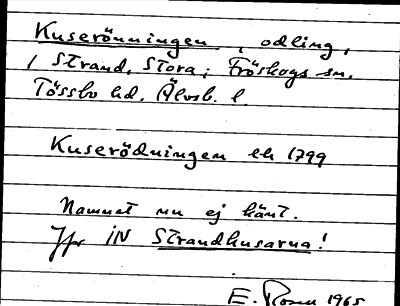 Kuserönningen, odling,
/ Strand, Stora; Fröskogs sn.
Tössbo hd. Älvsb. l.
Kuserödningen ek 1799
Namnet nu ej känt.
Jfr IN Strandhusarna!
E. Rosén 1965